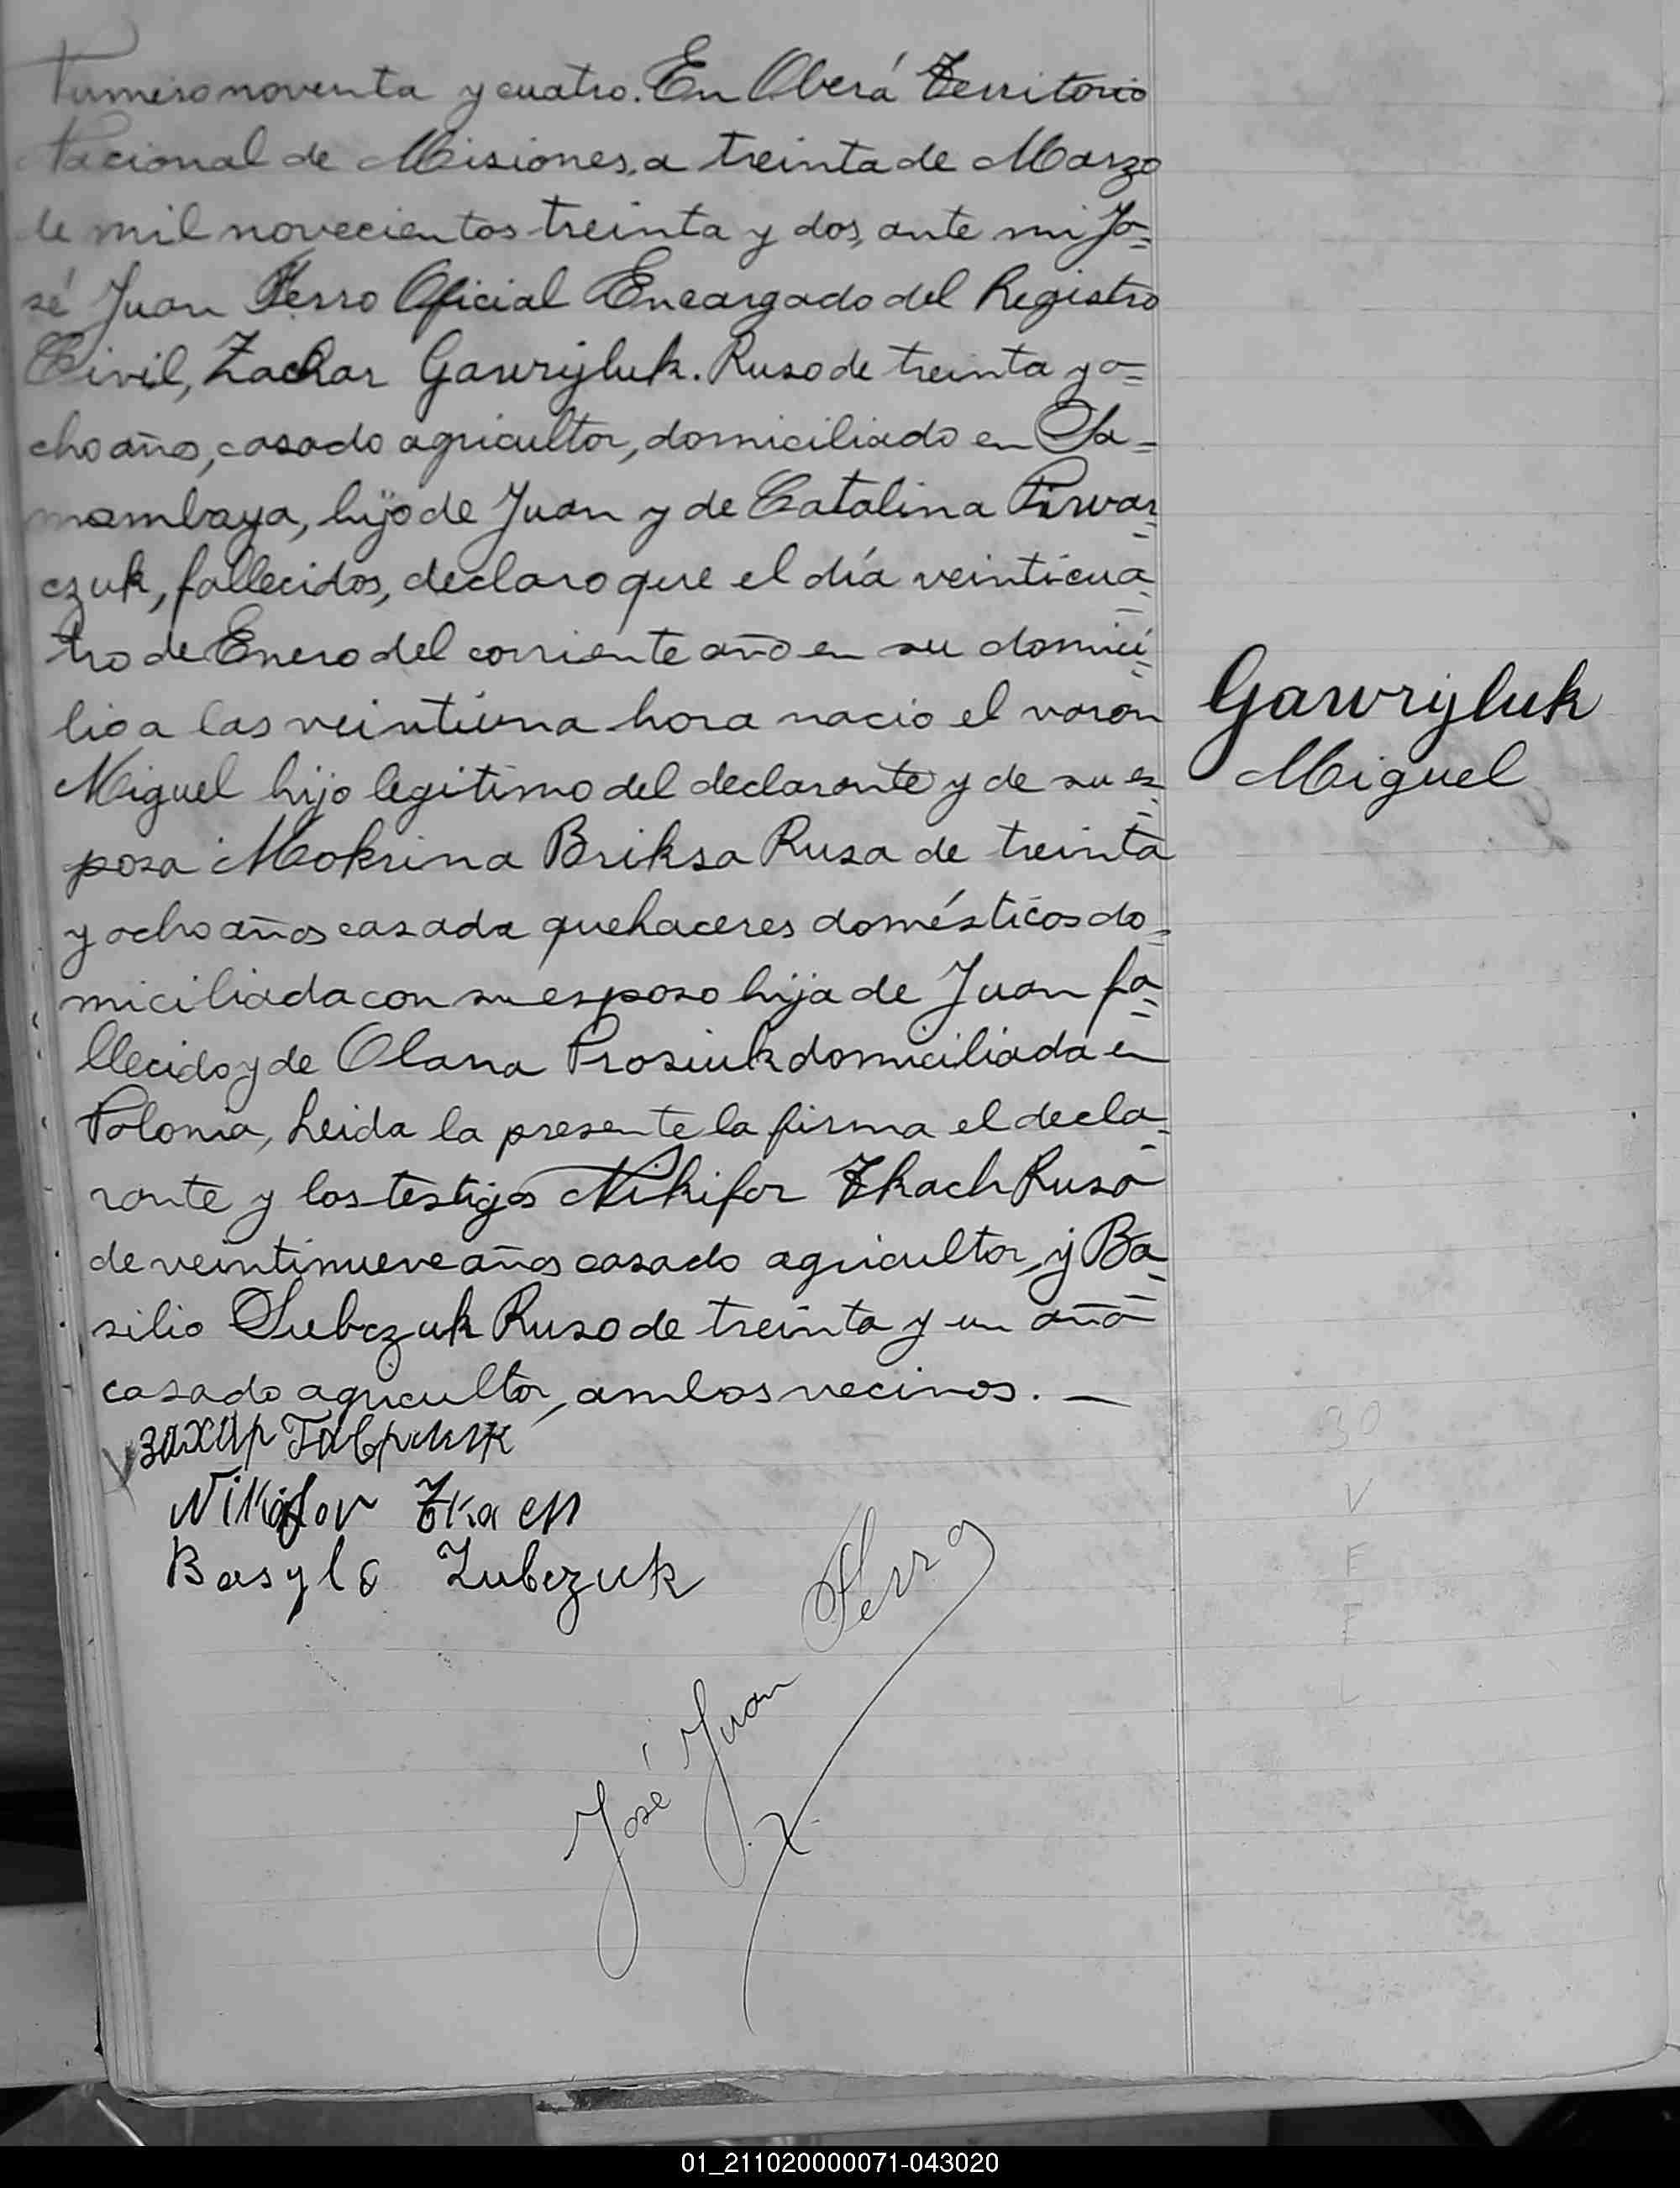 Numero noventa y cuatro. En Oberá Territorio
Nacional de Misiones, a treinta de Marzo
de mil novecientos treinta y dos, ante mi Jo=
sé Juan Ferro Oficial Encargado del Registro
Civil, Zachar Gawryluk. Ruso de treinta y o=
cho años, casado agricultor, domiciliado en Sa=
mambaya, hijo de Juan y de Catalina Pirvar=
czuk, fallecidos, declaro que el día veinticua=
tro de Enero del corriente año en su domici=
lio a las veintiuna hora nacio el varon
Miguel hijo legitimo del declarante y de su es=
posa Mokrina Briksa Rusa de treinta
y ocho años casada quehaceres domésticos do=
miciliada con su esposo hija de Juan fa=
llecido y de Olana Prosiuk domiciliada en
Polonia, Leida la presente la firma el decla=
rante y los testigos Nikifor Tkach Ruso
de veintinueve años casado agricultor, y Ba=
silio Subczuk Ruso de treinta y un año
casado agricultor, ambos vecinos. —
Gawryluk
Miguel
захар Гаврилюк
Nikifor Tkacn
Basylo Zubczuk
José Juan Ferro
30
V
F
F
L
01_211020000071-043020